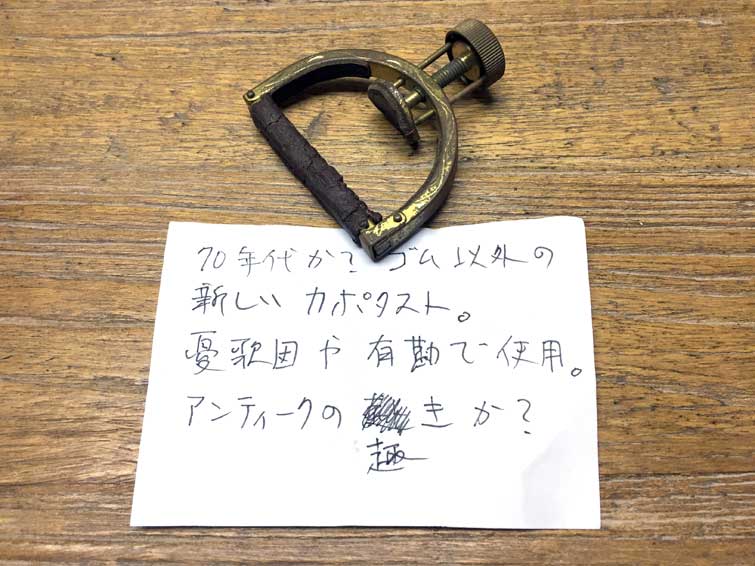 70年代か? ゴム以外の
新しいカポタスト。
憂歌団や有勘で使用。
アンティークの きか?
趣